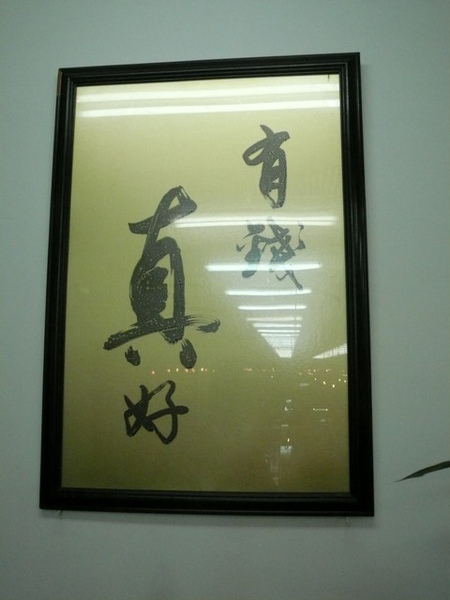 有錢
真好